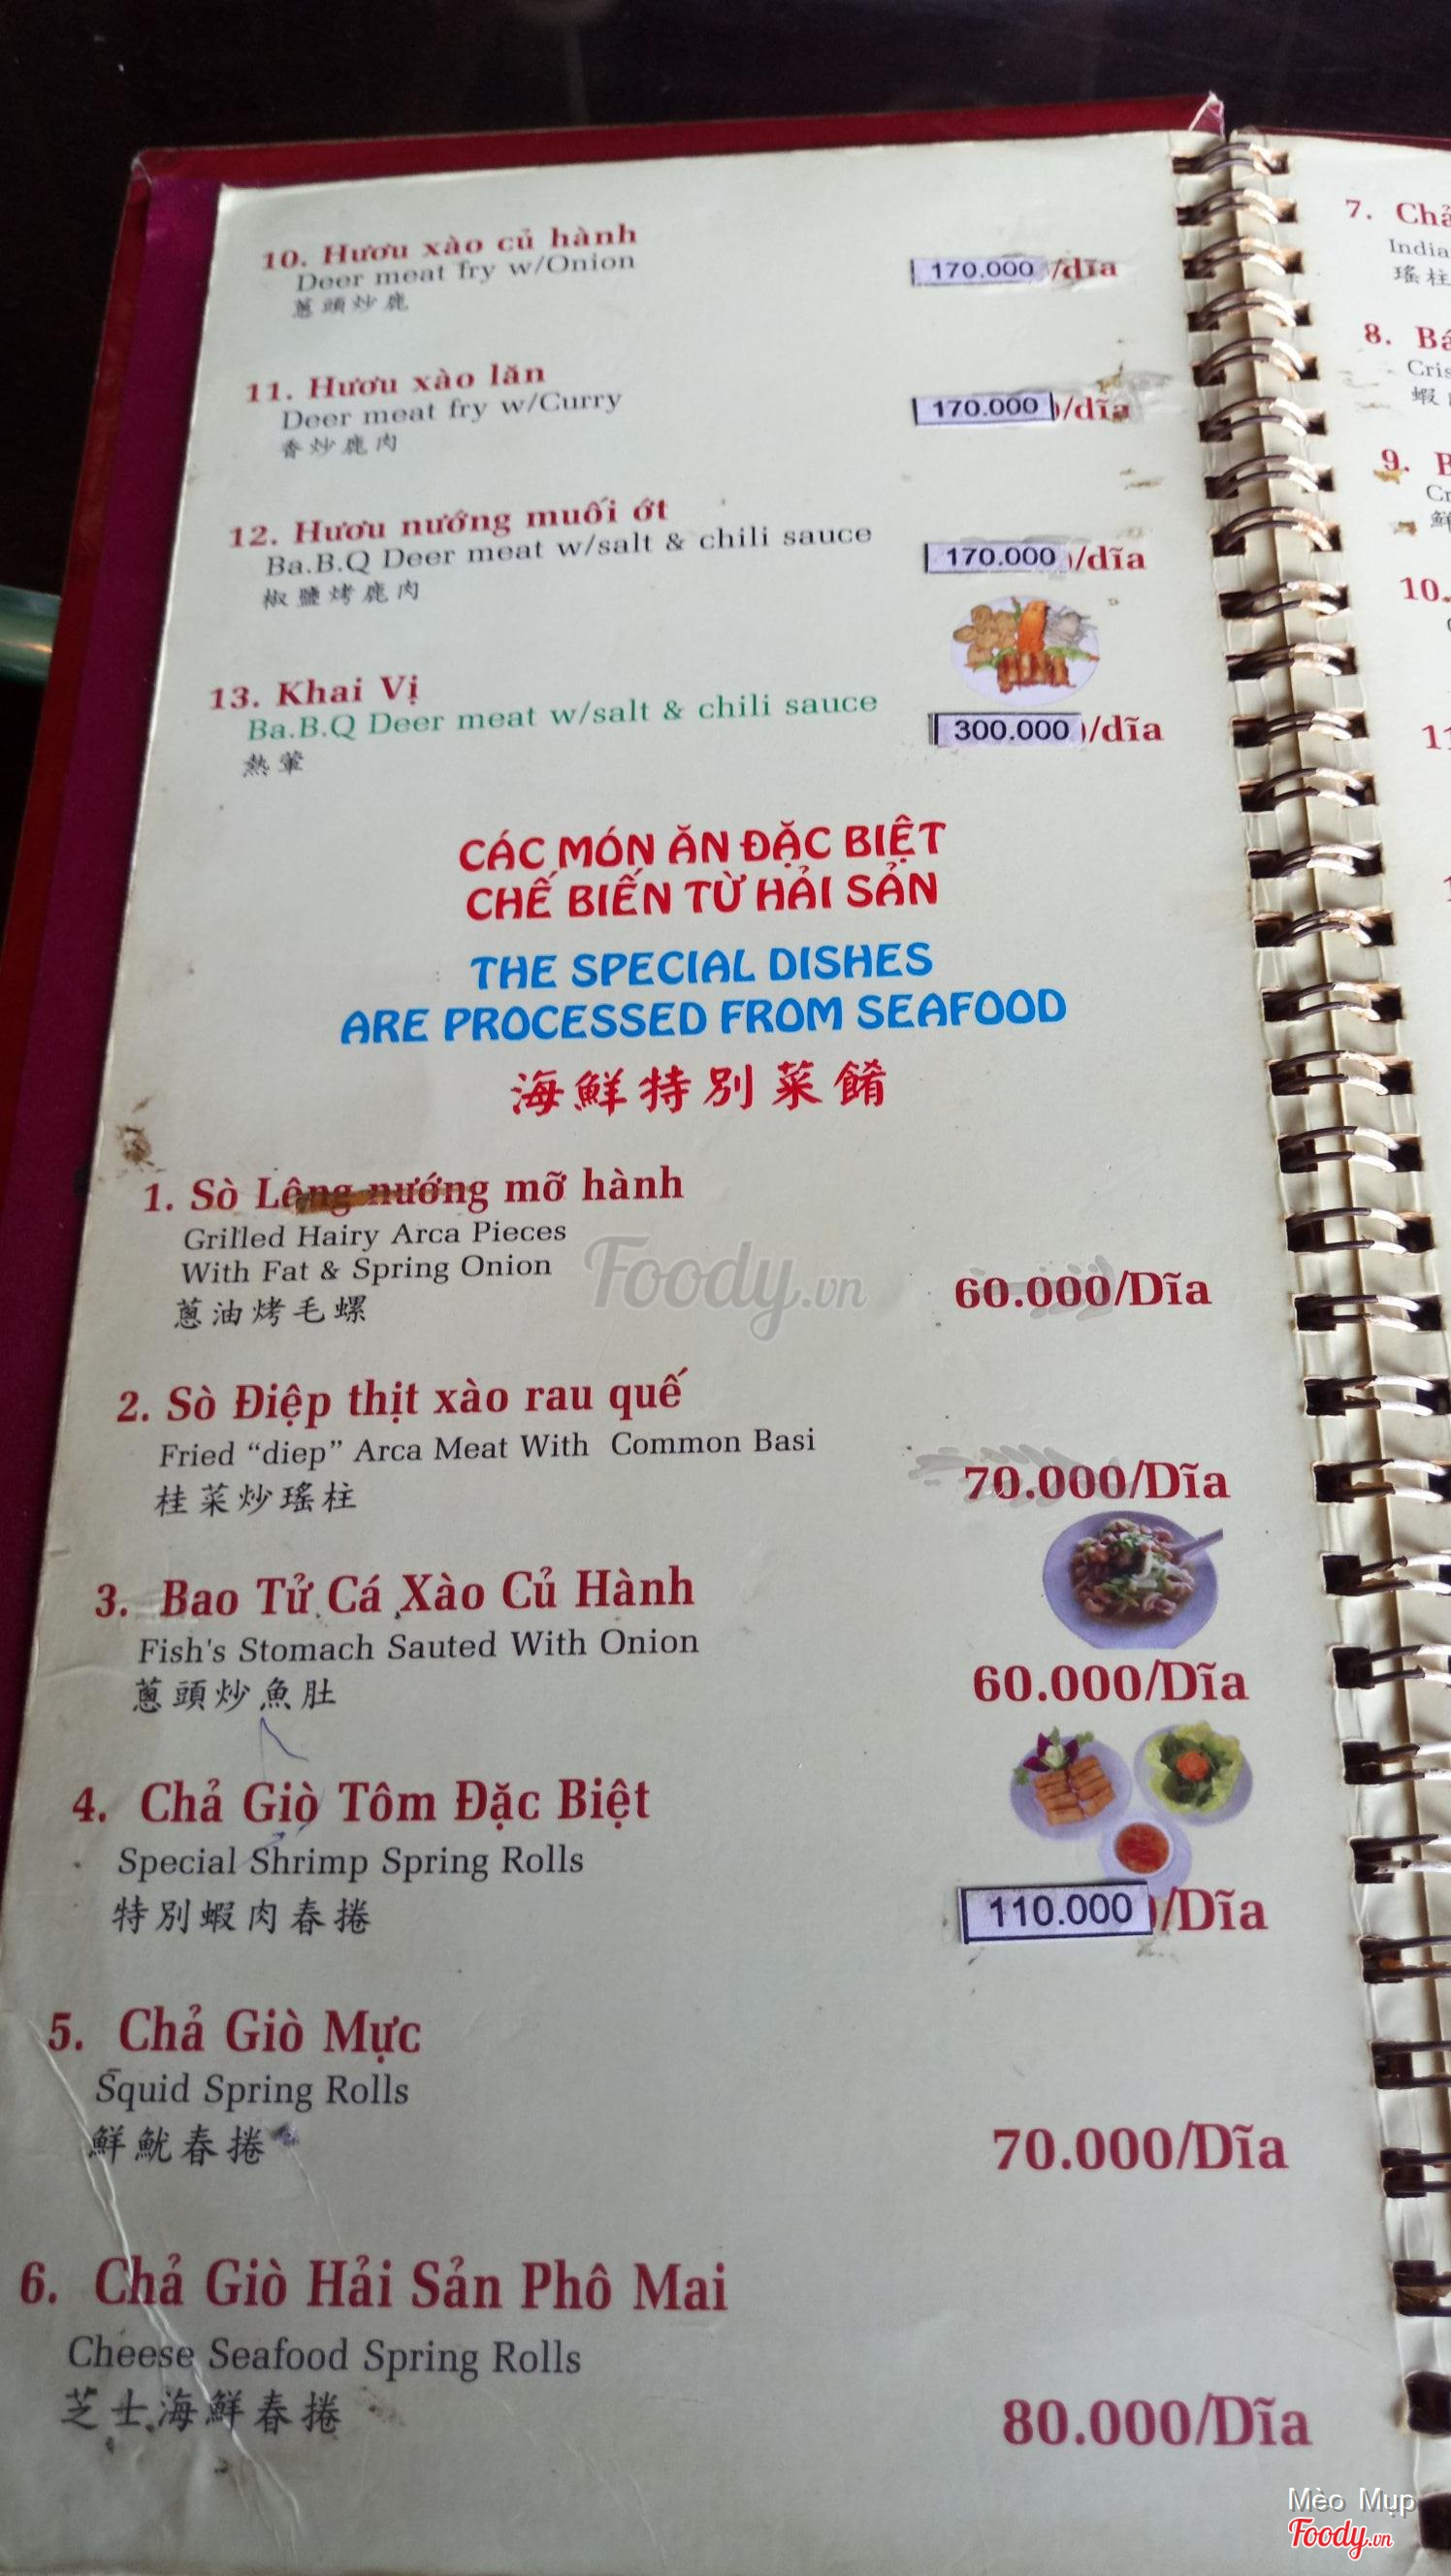 10. Hươu xào củ hành
Deer meat fry w/Onion
蔥頭炒鹿
170.000 /dĩa
11. Hươu xào lăn
Deer meat fry w/Curry
香炒鹿肉
170.000 /dĩa
12. Hươu nướng muối ớt
Ba.B.Q Deer meat w/salt & chili sauce
椒鹽烤鹿肉
170.000 /dĩa
13. Khai Vị
Ba.B.Q Deer meat w/salt & chili sauce
熱葷
300.000 /dĩa
CÁC MÓN ĂN ĐẶC BIỆT
CHẾ BIẾN TỪ HẢI SẢN
THE SPECIAL DISHES
ARE PROCESSED FROM SEAFOOD
海鮮特別菜餚
1. Sò Lông nướng mỡ hành
Grilled Hairy Arca Pieces
With Fat & Spring Onion
蔥油烤毛螺
60.000/Dĩa
Foody.vn
2. Sò Điệp thịt xào rau quế
Fried “diep” Arca Meat With Common Basi
桂菜炒瑤柱
70.000/Dĩa
3. Bao Tử Cá Xào Củ Hành
Fish's Stomach Sauted With Onion
蔥頭炒魚肚
60.000/Dĩa
4. Chả Giò Tôm Đặc Biệt
Special Shrimp Spring Rolls
特別蝦肉春捲
110.000 /Dĩa
5. Chả Giò Mực
Squid Spring Rolls
鮮魷春捲
70.000/Dĩa
6. Chả Giò Hải Sản Phô Mai
Cheese Seafood Spring Rolls
芝士海鮮春捲
80.000/Dĩa
7. Chả
India
瑤柱
8.
Cris
蝦
9.
10.
Mèo Mụp
Foody.vn